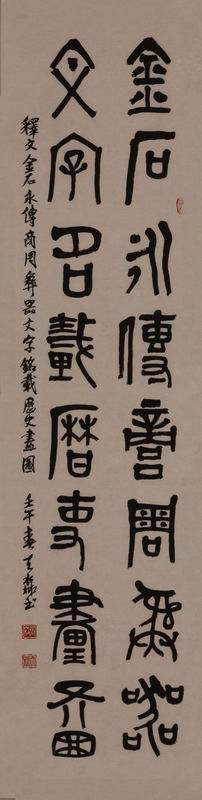 金石永傳商周彝器
文字名載曆史畫圖
釋文金石永傳商周彝器文字銘載歷史畫圖
壬午春